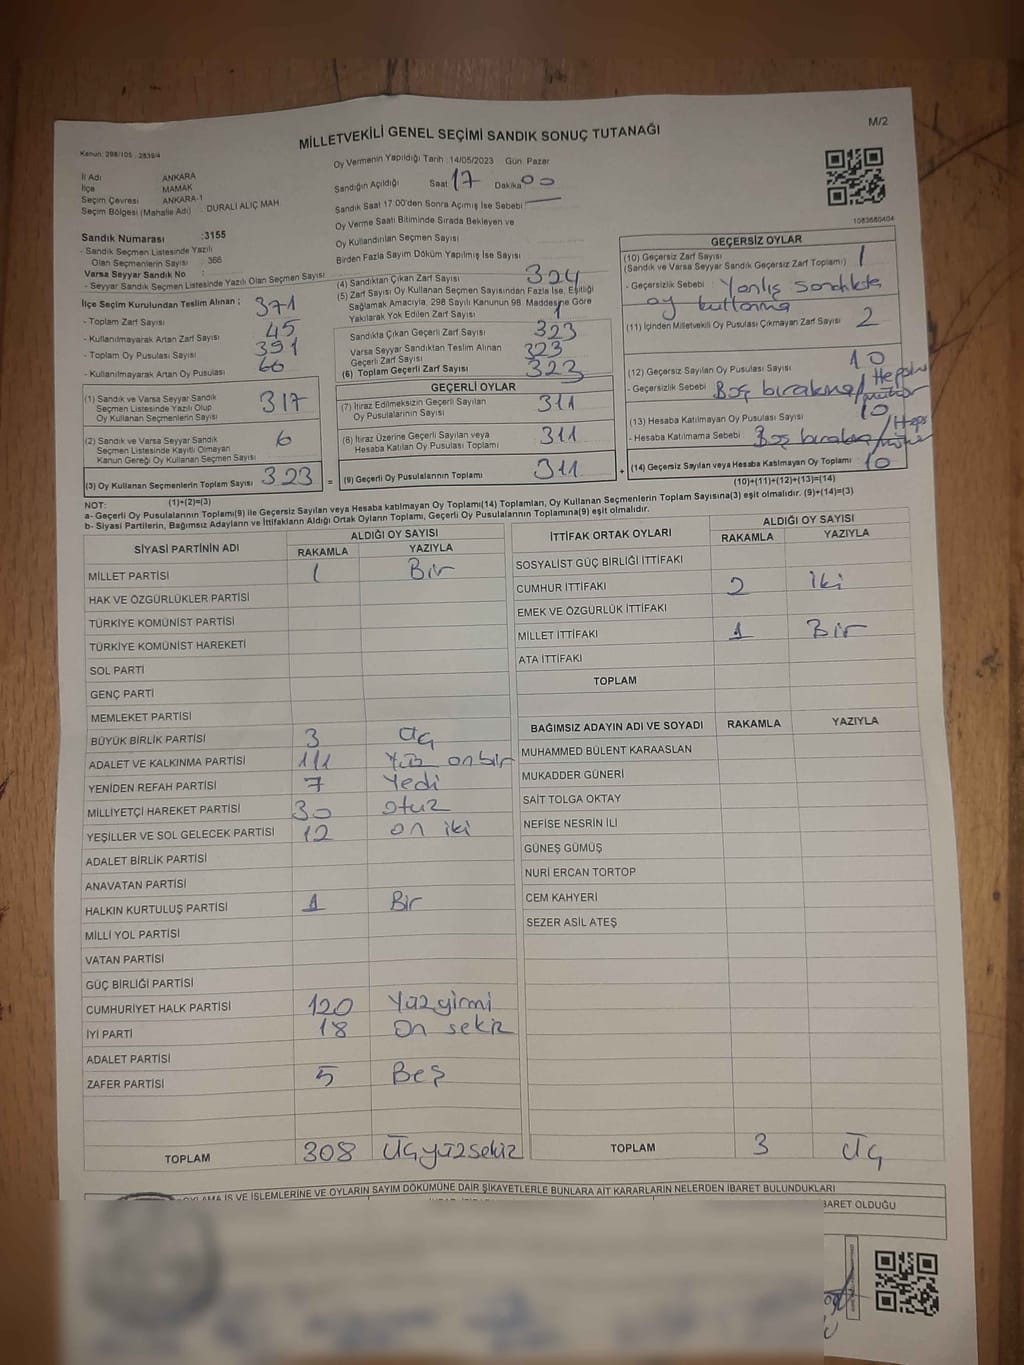 MİLLETVEKİLİ GENEL SEÇİMİ SANDIK SONUÇ TUTANAĞI
M/2
Kanun: 298/105 : 2839/4
Oy Vermenin Yapıldığı Tarih : 14/05/2023 Gün: Pazar
İl Adı ANKARA
İlçe MAMAK
Seçim Çevresi ANKARA-1
Seçim Bölgesi (Mahalle Adı) : DURALİ ALIÇ MAH
Sandığın Açıldığı Saat 17 Dakika 00
Sandık Saat 17:00'den Sonra Açılmış İse Sebebi
Oy Verme Saati Bitiminde Sırada Bekleyen ve
Oy Kullandırılan Seçmen Sayısı
Birden Fazla Sayım Döküm Yapılmış İse Sayısı
1083680404
Sandık Numarası :3155
- Sandık Seçmen Listesinde Yazılı
Olan Seçmenlerin Sayısı : 366
Varsa Seyyar Sandık No :
- Seyyar Sandık Seçmen Listesinde Yazılı Olan Seçmen Sayısı
İlçe Seçim Kurulundan Teslim Alınan ;
- Toplam Zarf Sayısı 371
- Kullanılmayarak Artan Zarf Sayısı 45
- Toplam Oy Pusulası Sayısı 391
- Kullanılmayarak Artan Oy Pusulası 66
(1) Sandık ve Varsa Seyyar Sandık
Seçmen Listesinde Yazılı Olup
Oy Kullanan Seçmenlerin Sayısı 317
(2) Sandık ve Varsa Seyyar Sandık
Seçmen Listesinde Kayıtlı Olmayan
Kanun Gereği Oy Kullanan Seçmen Sayısı 6
(3) Oy Kullanan Seçmenlerin Toplam Sayısı 323
(1)+(2)=(3)
(4) Sandıktan Çıkan Zarf Sayısı 324
(5) Zarf Sayısı Oy Kullanan Seçmen Sayısından Fazla İse, Eşitliği
Sağlamak Amacıyla, 298 Sayılı Kanunun 98. Maddesine Göre
Yakılarak Yok Edilen Zarf Sayısı 1
Sandıkta Çıkan Geçerli Zarf Sayısı 323
Varsa Seyyar Sandıktan Teslim Alınan
Geçerli Zarf Sayısı 323
(6) Toplam Geçerli Zarf Sayısı 323
GEÇERLİ OYLAR
(7) İtiraz Edilmeksizin Geçerli Sayılan
Oy Pusulalarının Sayısı 311
(8) İtiraz Üzerine Geçerli Sayılan veya
Hesaba Katılan Oy Pusulası Toplamı 311
= (9) Geçerli Oy Pusulalarının Toplamı 311 +
GEÇERSİZ OYLAR
(10) Geçersiz Zarf Sayısı
(Sandık ve Varsa Seyyar Sandık Geçersiz Zarf Toplamı) 1
- Geçersizlik Sebebi : Yanlış sandıkta
oy kullanma
(11) İçinden Milletvekili Oy Pusulası Çıkmayan Zarf Sayısı 2
(12) Geçersiz Sayılan Oy Pusulası Sayısı 10
- Geçersizlik Sebebi Boş bırakma/
(13) Hesaba Katılmayan Oy Pusulası Sayısı 10
- Hesaba Katılmama Sebebi : Boş
(14) Geçersiz Sayılan veya Hesaba Katılmayan Oy Toplamı 10
(10)+(11)+(12)+(13)=(14)
NOT:
a- Geçerli Oy Pusulalarının Toplamı(9) ile Geçersiz Sayılan veya Hesaba katılmayan Oy Toplamı(14) Toplamları, Oy Kullanan Seçmenlerin Toplam Sayısına(3) eşit olmalıdır. (9)+(14)=(3)
b- Siyasi Partilerin, Bağımsız Adayların ve İttifakların Aldığı Ortak Oyların Toplamı, Geçerli Oy Pusulalarının Toplamına(9) eşit olmalıdır.
SİYASİ PARTİNİN ADI ALDIĞI OY SAYISI
RAKAMLA YAZIYLA
MİLLET PARTİSİ 1 Bir
HAK VE ÖZGÜRLÜKLER PARTİSİ
TÜRKİYE KOMÜNİST PARTİSİ
TÜRKİYE KOMÜNİST HAREKETİ
SOL PARTİ
GENÇ PARTİ
MEMLEKET PARTİSİ
BÜYÜK BİRLİK PARTİSİ 3 Üç
ADALET VE KALKINMA PARTİSİ 111 Yüz onbir
YENİDEN REFAH PARTİSİ 7 Yedi
MİLLİYETÇİ HAREKET PARTİSİ 30 otuz
YEŞİLLER VE SOL GELECEK PARTİSİ 12 on iki
ADALET BİRLİK PARTİSİ
ANAVATAN PARTİSİ
HALKIN KURTULUŞ PARTİSİ 1 Bir
MİLLİ YOL PARTİSİ
VATAN PARTİSİ
GÜÇ BİRLİĞİ PARTİSİ
CUMHURİYET HALK PARTİSİ 120 Yüzyirmi
İYİ PARTİ 18 On sekiz
ADALET PARTİSİ
ZAFER PARTİSİ 5 Beş
TOPLAM 308 Üçyüzsekiz
İTTİFAK ORTAK OYLARI ALDIĞI OY SAYISI
RAKAMLA YAZIYLA
SOSYALİST GÜÇ BİRLİĞİ İTTİFAKI
CUMHUR İTTİFAKI 2 iki
EMEK VE ÖZGÜRLÜK İTTİFAKI
MİLLET İTTİFAKI 1 Bir
ATA İTTİFAKI
TOPLAM
BAĞIMSIZ ADAYIN ADI VE SOYADI RAKAMLA YAZIYLA
MUHAMMED BÜLENT KARAASLAN
MUKADDER GÜNERİ
SAİT TOLGA OKTAY
NEFİSE NESRİN İLİ
GÜNEŞ GÜMÜŞ
NURİ ERCAN TORTOP
CEM KAHYERİ
SEZER ASİL ATEŞ
TOPLAM 3 Üç
İŞ VE İŞLEMLERİNE VE OYLARIN SAYIM DÖKÜMÜNE DAİR ŞİKAYETLERLE BUNLARA AİT KARARLARIN NELERDEN İBARET BULUNDUKLARI
BARET OLDUĞU